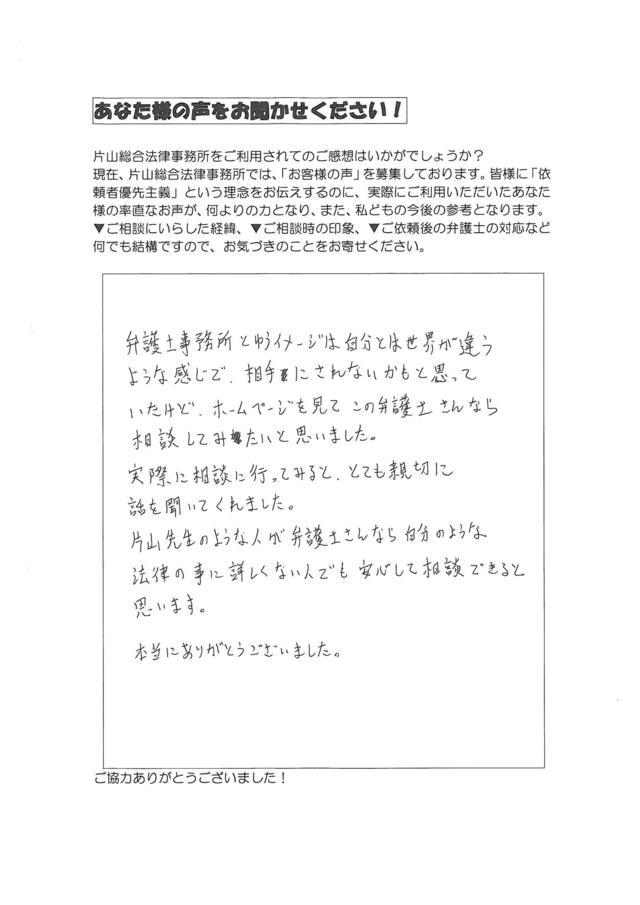 あなた様の声をお聞かせください！
片山総合法律事務所をご利用されてのご感想はいかがでしょうか？
現在、片山総合法律事務所では、「お客様の声」を募集しております。皆様に「依
頼者優先主義」という理念をお伝えするのに、実際にご利用いただいたあなた
様の率直なお声が、何よりの力となり、また、私どもの今後の参考となります。
▼ご相談にいらした経緯、▼ご相談時の印象、▼ご依頼後の弁護士の対応など
何でも結構ですので、お気づきのことをお寄せください。
弁護士事務所とゆうイメージは自分とは世界が違う
ような感じで、相手にされないかもと思って
いたけど、ホームページを見てこの弁護士さんなら
相談してみたいと思いました。
実際に相談に行ってみると、とても親切に
話を聞いてくれました。
片山先生のような人が弁護士さんなら自分のような
法律の事に詳しくない人でも安心して相談できると
思います。
本当にありがとうございました。
ご協力ありがとうございました！